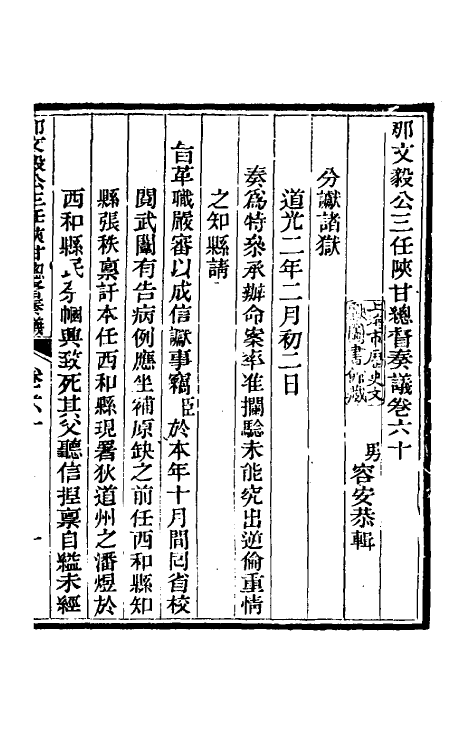 那文毅公三任陝甘總督奏議卷六十
男
容安恭輯
分讞諸獄
道光二年二月初二日
奏爲特叅承辦命案率准攔驗未能究出逆倫重情
之知縣請
旨革職嚴審以成信讞事竊臣於本年十月間回省校
閱武闈有告病例應坐補原缺之前任西和縣知
縣張秩稟訐本任西和縣現署狄道州之潘煜於
西和縣民 幗興致死其父聽信捏稟自縊未經
那文毅公三任陝甘總督奏議
卷六十
一